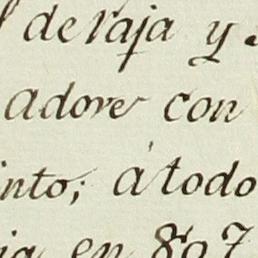 de raja y
adore con
nto; á todo
en 897